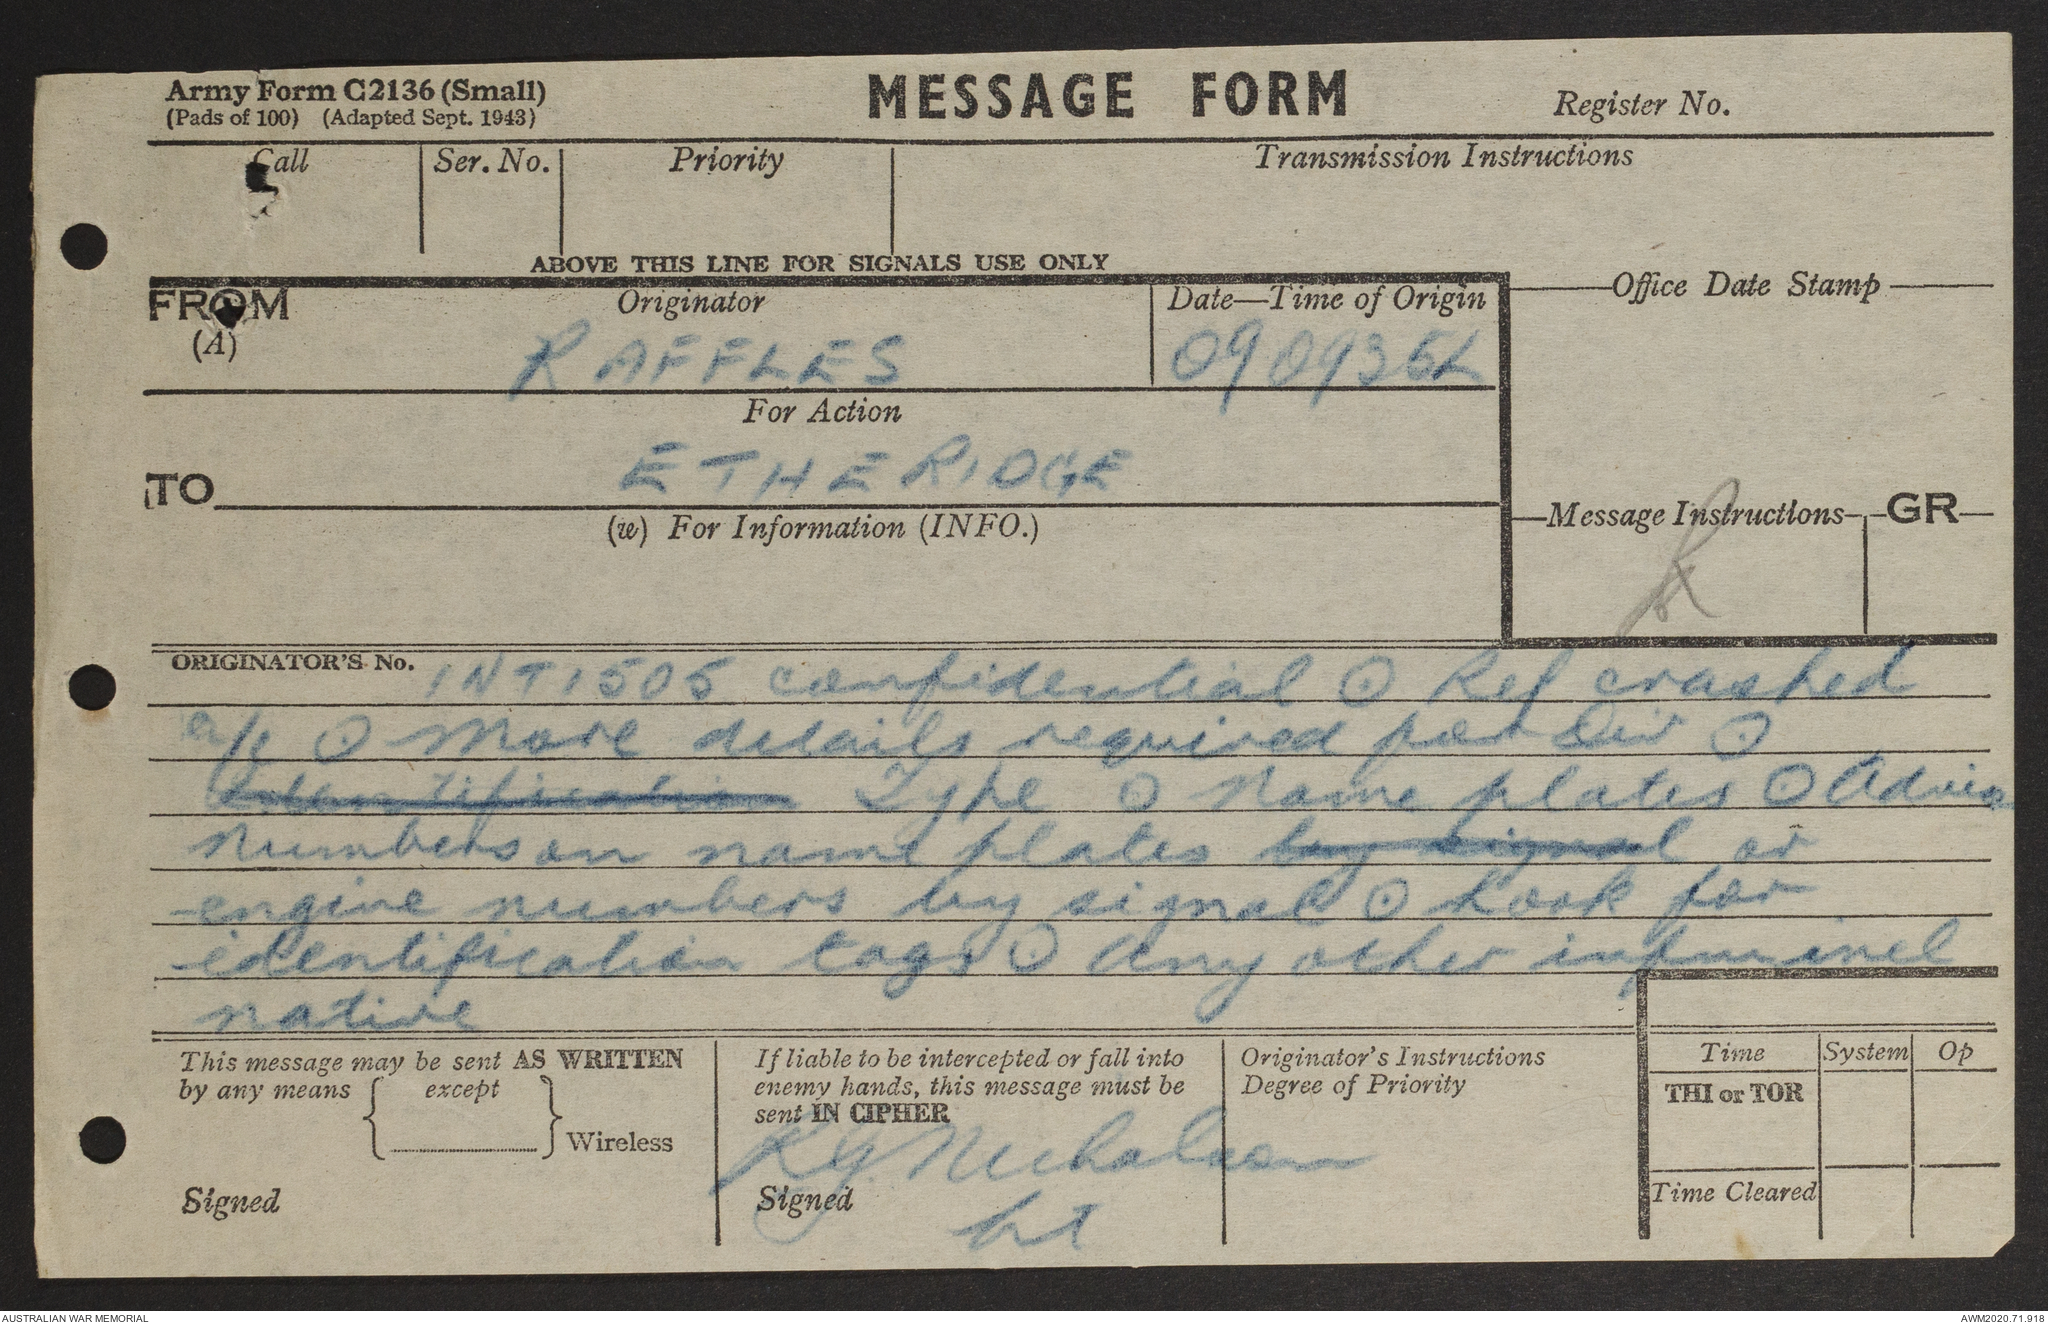 Army Form C2136 (Small)
(Pads of 100) (Adapted Sept. 1943)
MESSAGE FORM
Register No.
Call
Ser. No.
Priority
Transmission Instructions
ABOVE THIS LINE FOR SIGNALS USE ONLY
FROM
(A)
Originator
RAFFLES
Date—Time of Origin
090935L
Office Date Stamp
For Action
ETHERIDGE
TO
(w) For Information (INFO.)
Message Instructions
GR
ORIGINATOR'S No. INT1505 confidential ⊙ Ref crashed
a/c ⊙ More details required for Div ⊙
Identification Type ⊙ Name plates ⊙ Advise
numbers on name plates by signal or
engine numbers by signal ⊙ Look for
identification tags ⊙ Any other inf incl
native
This message may be sent AS WRITTEN
by any means { except } Wireless
Signed
If liable to be intercepted or fall into
enemy hands, this message must be
sent IN CIPHER
Nicholson
Signed
Lt
Originator's Instructions
Degree of Priority
Time
System
Op
THI or TOR
Time Cleared
AUSTRALIAN WAR MEMORIAL
AWM2020.71.918